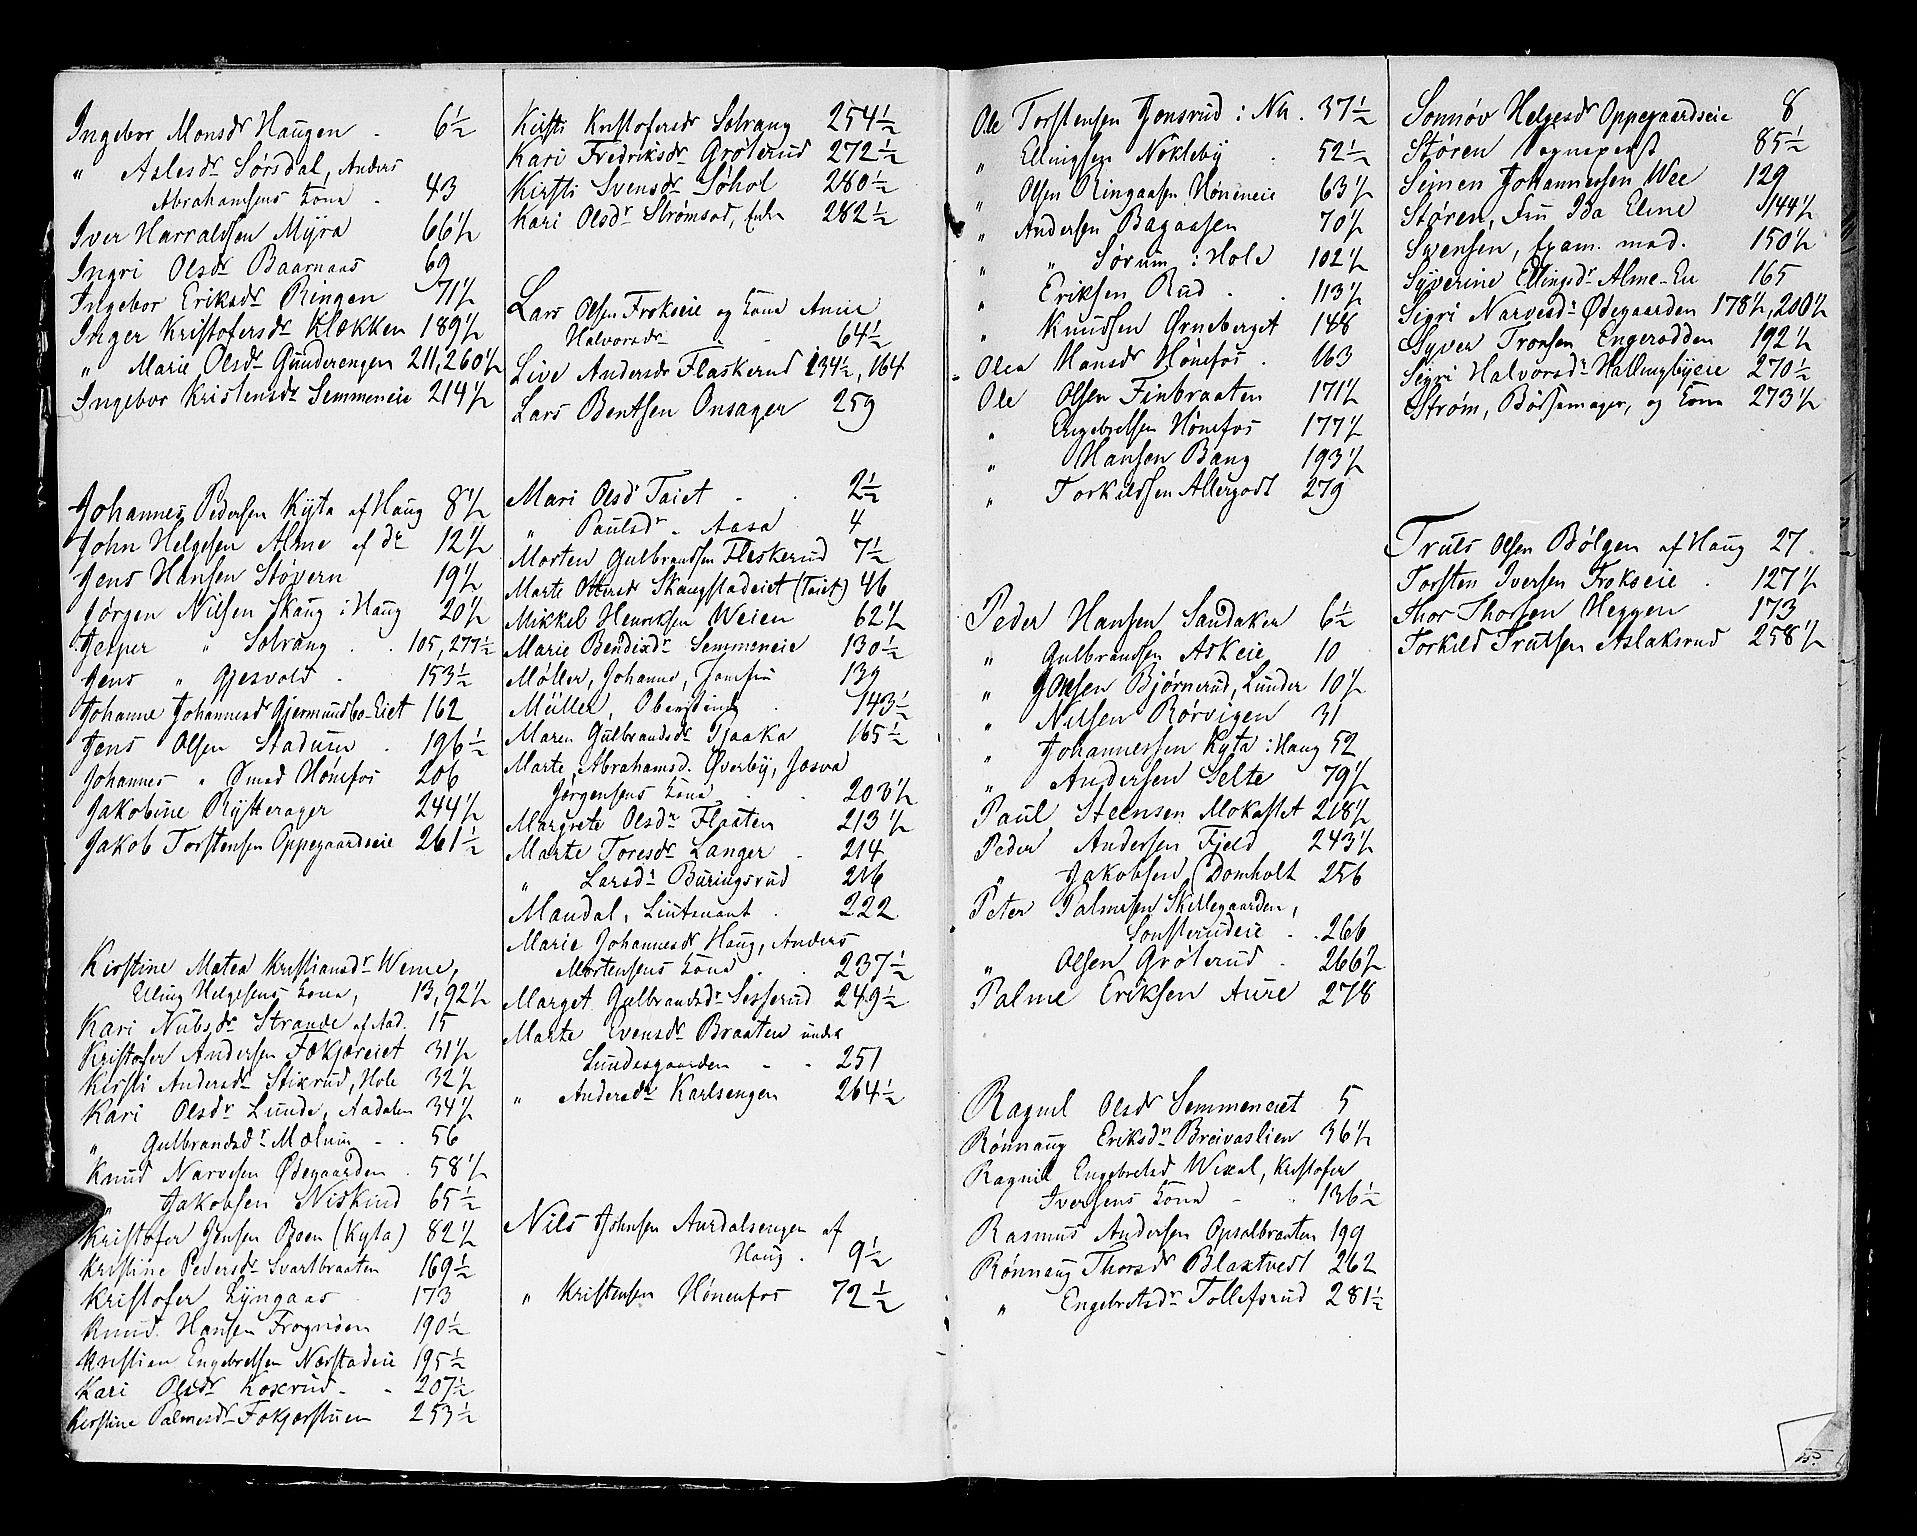 Ingebor Monsdr Haugen . 6½
" Aslesdr Sørsdal, Anders
Abrahamsens Kone . 43
Iver Harraldsen Myra 66½
Ingri Olsdr Baarnaas 69
Ingebor Eriksdr Ringen 71½
Inger Kristofersdr Klækken 189½
" Marie Olsdr Gunderengen 211, 260½
Ingebor Kristensdr Semmeneie 214½
Johannes Pedersen Kyta af Haug 8½
John Helgesen Alme af do 12½
Jens Hansen Støvern 19½
Jørgen Nilsen Skaug i Haug 20½
Jesper " Solvang . . 105, 277½
Jens " Gjesvold . 153½
Johanne Johannesdr Gjermundbo-Eiet 162
Jens Olsen Stadum . 196½
Johannes " Smed Hønefos 206
Jakobine Rytterager 244½
Jakob Torstensen Oppegaardseie 261½
Kirstine Matea Kristiansdr Weme,
Elling Helgesens Kone, 13, 92½
Kari Nubsdr Strande af Aad. 15
Kristofer Andersen Fokjæreiet 31½
Kirsti Andersdr Stixrud, Hole 32½
Kari Olsdr Lunde, Aadalen 34½
" Gulbrandsdr Mælum - . 56
Knud Narvesen Ødegaarden . 58½
" Jakobsen Niskind 65½
Kristofer Jensen Boen (Kyta) 82½
Kristine Pedersdr Svartbraaten 169½
Kristofer Lyngaas . 173
Knud Hansen Frognøen 190½
Kristian Engebretsen Nærstadeie 195½
Kari Olsdr Koxrud - - 207½
Kirstine Palmesdr Fokjærstuen 253½
Kirsti Kristofersdr Solvang 254½
Kari Fredriksdr Grøterud 272½
Kirsti Svensdr Søhol 280½
Kari Olsdr Strømsod, Enke 282½
Lars Olsen Frokseie og Kone Anne
Halvorsdr - - 64½
Live Andersdr Flaskerud 134½, 164
Lars Bentsen Onsager 259
Mari Olsdr Taiet - . 2½
" Paulsdr . Aasa 4
Morten Gulbrandsen Fleskerud 7½
Marte Ottersdr Skaugstadeiet (Taiet) 46
Mikkel Henriksen Weien 62½
Marie Bendixdr Semmeneie 130½
Møller, Johanne, Jomfru 139
Müller, Oberstinde . 143½
Maren Gulbrandsdr Tjaaka 165½
Marte Abrahamsd. Øverby, Josva
Jørgensens Kone . . 203½
Margrete Olsdr Flaaten 213½
Marte Toresdr Langer . 214
" Larsdr Buringsrud 216
Mandal, Lieutenant . 222
Marie Johannesdr Haug, Anders
Mortensens Kone . . 237½
Marget Gulbrandsdr Sesserud 249½
Marte Evensdr Braaten under
Lundesgaarden - - 251
" Andersdr Karlsengen 264½
Nils Johnsen Aurdalsengen af
Haug . 9½
" Kristensen Hønenfos 72½
Ole Torstensen Gonsrud i Na . 37½
" Ellingsen Nokleby . 52½
" Olsen Ringaasen Høneneie 63½
" Andersen Bagaasen 70½
" " Sørum i Hole 102½
" Eriksen Rud . . 113½
" Knudsen Ørneberget 148
Olea Hansdr Hønefos . 163
Ole Olsen Finbraaten 171½
" Engebretsen Hønefos 177½
" Hansen Bang 193½
" Torkildsen Allergodt 279
Peder Hansen Sandaker 6½
" Gulbrandsen Askeie 10
" Jonsen Bjørnerud, Lunder 10½
" Nilsen Rørvigen 31
" Johannessen Kyta i Haug 52
" Andersen Gelte 79½
Paul Steensen Mokastet 218½
Peder Andersen Fjeld 243½
" Jakobsen Domholt 256
Peter Palmesen Skillegaarden,
Sonsterudeie . . 266
" Olsen Grøterud . 266½
Palme Eriksen Aure 278
Ragnil Olsdr Semmeneiet 5
Rønnaug Eriksdr Breivaslien 36½
Ragnil Engebretsd Wexal, Kristofer
Iversens Kone - " 136½
Rasmus Andersen Opsalbraaten 199
Rønnaug Thorsdr Blaxtvedt 262
" Engebretsdr Tollefsrud 281½
Sonnøv Helgesdr Oppegaardseie 8
Støren Vognsperst 85½
Seimen Johannessen Wee 129
Støren, Fru Ida Eline 144½
Svensen, Exam. med. 150½
Syverine Ellingsdr Alme-Eie 165
Sigri Narvesdr Ødegaarden 178½, 200½
Syver Tronsen Engerodden 192½
Sigri Halvorsdr Hallingbyeie 270½
Strøm, Bøssemager, og Kone 273½
Truls Olsen Bølgen af Haug 27 .
Torsten Iversen Frokseie . 127½
Thor Thorsen Heggen 173
Torkild Trulsen Aslaksrud 258½